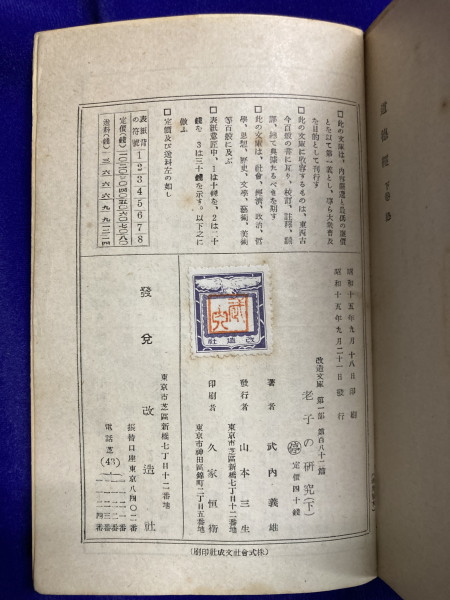 □此の文庫は、內容嚴選と最低の廉價
とを以て第一義とし、專ら大衆普及
を目的として刊行す
□此の文庫に收容するものは、東西古
今百般の書に亙り、校訂、註釋、飜
譯、極て典據たるべきを期す
□此の文庫は、社會、經濟、政治、哲
學、思想、歷史、文學、藝術、美術
等百般に及ぶ
□表紙意匠中、1は十錢を、2は二十
錢を 3は三十錢を示す。以下之に
倣ふ
□定價及び送料左の如し
表紙背の符號 1 2 3 4 5 6 7 8
定價(錢) 一〇 二〇 三〇 四〇 五〇 六〇 七〇 八〇
昭和十五年九月十八日印刷
昭和十五年九月二十一日發行
改造文庫 第一部 第百八十二篇
老子の硏究(下)
停 定價四十錢
著者 武內義雄
發行者 山本三生
東京市芝區新橋七丁目十二番地
印刷者 久家恒衞
東京市神田區錦町三丁目五番地
改造社
東京市芝區新橋七丁目十二番地
發兌 改造社
振替口座東京八四〇二番
電話芝(43)
(株式會社文成社印刷)